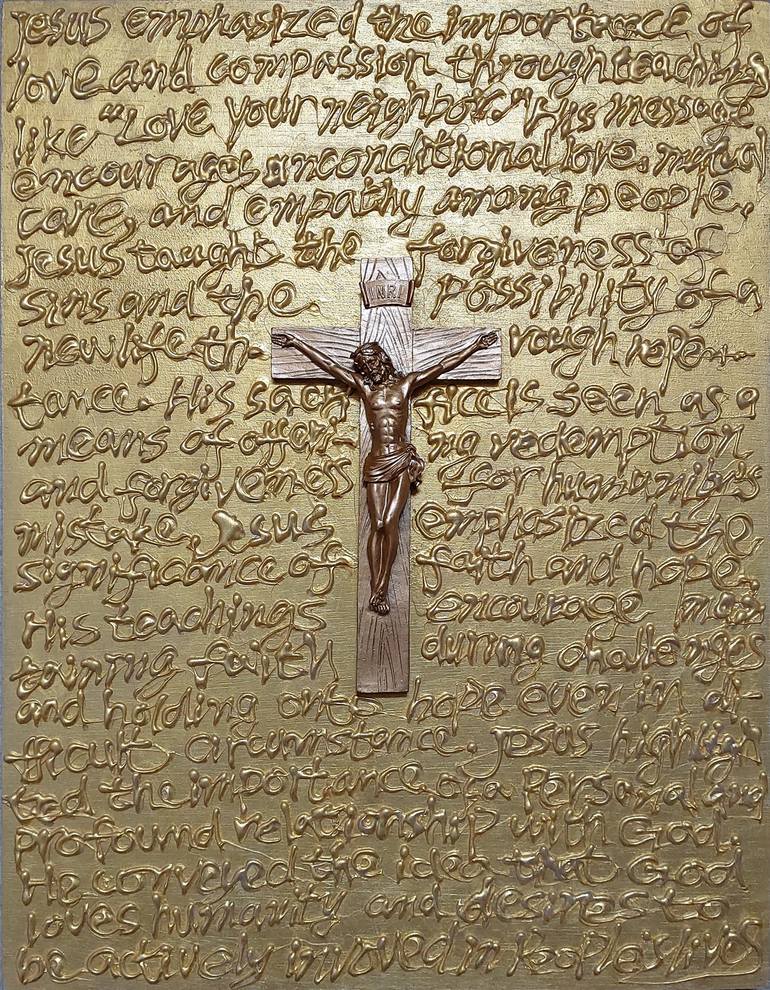 Jesus emphasized the importance of
love and compassion through teachings
like "Love your neighbor." His message
encourages unconditional love, mutual
care, and empathy among people.
Jesus taught the forgiveness of
sins and the possibility of a
new life th- rough repen-
INRI
tance. His sacri- fice is seen as a
means of offeri- ng redemption
and forgiveness for humanity's
mistake. Jesus emphasized the
significance of faith and hope.
His teachings encourage main
taining faith during challenges
and holding onto hope even in di-
fficult circumstance. Jesus highligh
ted the importance of a Personal and
profound relationship with God.
He conveyed the idea that God
loves humanity and desires to
be actively invoved in People's lives